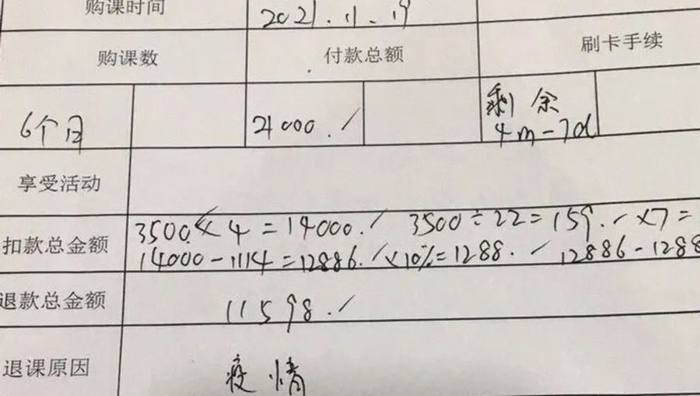 购课时间 2021.11.19
购课数 付款总额 刷卡手续
6个月 21000./ 剩余
4m-7d
享受活动
3500×4=14000./ 3500÷22=159./×7=
扣款总金额
14000-1114=12886./×10%=1288./ 12886-1288
退款总金额 11598./
退课原因 疫情